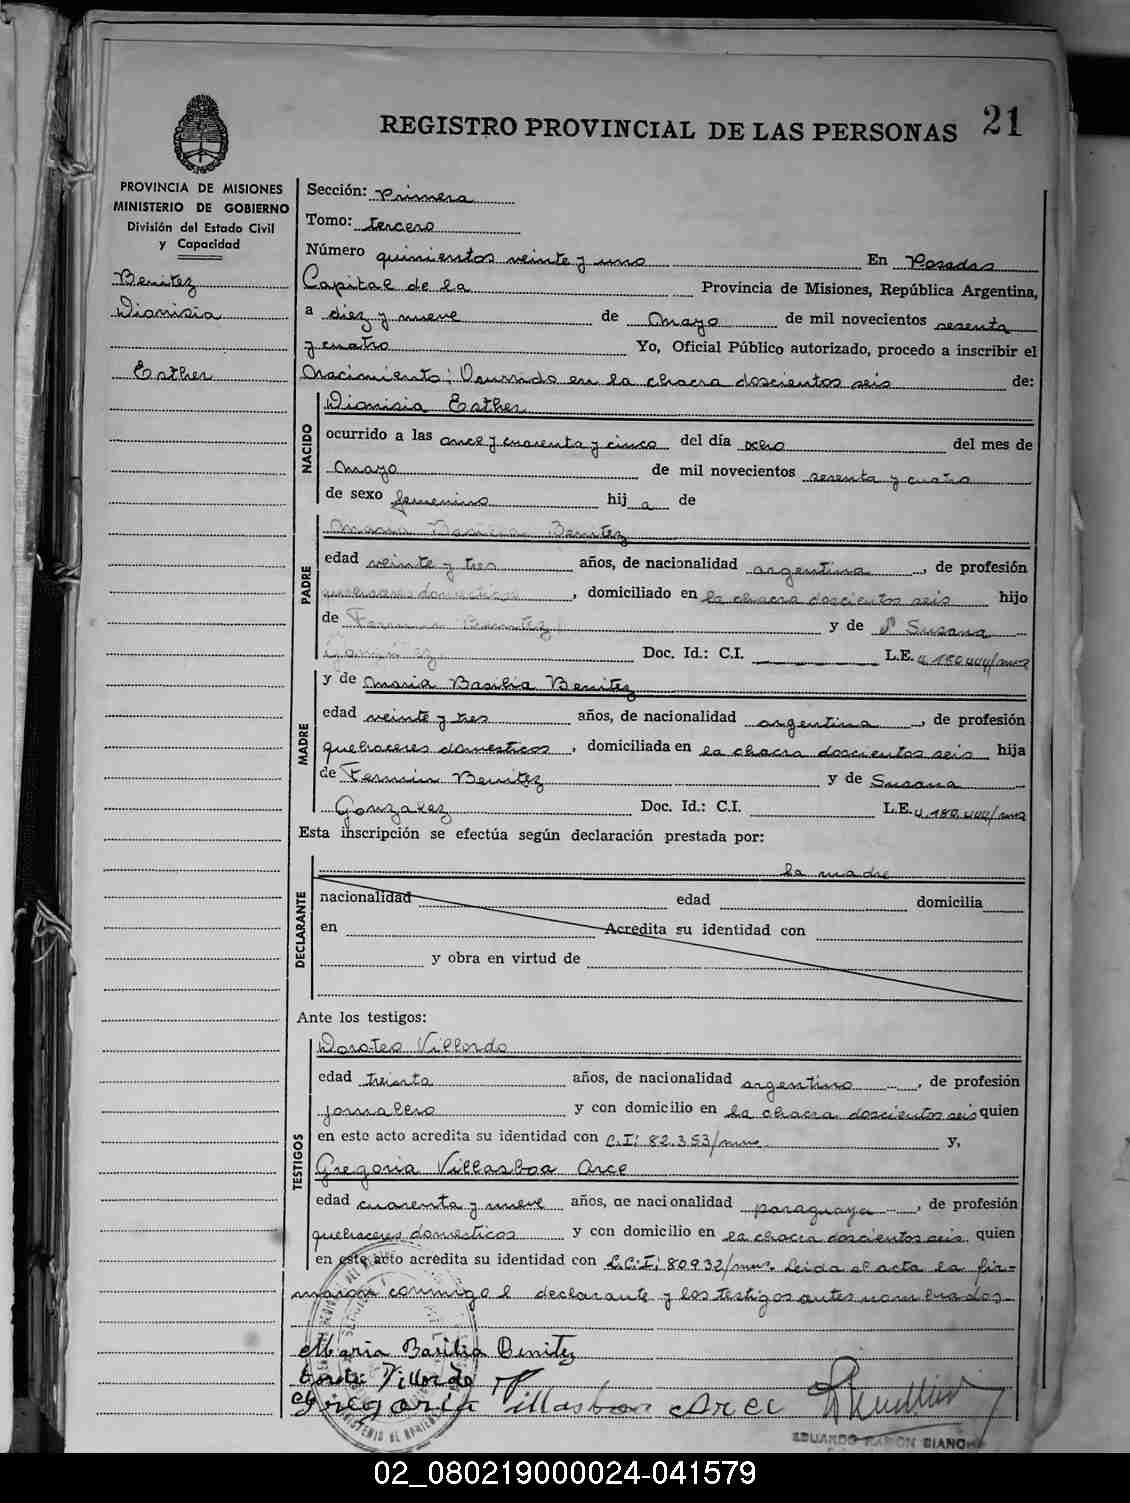 REGISTRO PROVINCIAL DE LAS PERSONAS 21
PROVINCIA DE MISIONES
MINISTERIO DE GOBIERNO
División del Estado Civil
y Capacidad
Benitez
Dionisia
Esther
Sección: Primera
Tomo: tercero
Número quinientos veinte y uno En Posadas
Capital de la Provincia de Misiones, República Argentina,
a diez y nueve de Mayo de mil novecientos sesenta
y cuatro Yo, Oficial Público autorizado, procedo a inscribir el
Nacimiento; Ocurrido en la chacra doscientos seis de:
NACIDO
Dionisia Esther
ocurrido a las once y cuarenta y cinco del día ocho del mes de
Mayo de mil novecientos sesenta y cuatro
de sexo femenino hij a de
PADRE
Maria Basilia Benitez
edad veinte y tres años, de nacionalidad argentina, de profesión
quehaceres domesticos, domiciliado en la chacra doscientos seis hijo
de Fermin Benitez y de Susana
Gonzalez Doc. Id.: C.I. L.E. 4.180.444/mns
MADRE
y de Maria Basilia Benitez
edad veinte y tres años, de nacionalidad argentina, de profesión
quehaceres domesticos, domiciliada en la chacra doscientos seis hija
de Fermin Benitez y de Susana
Gonzalez Doc. Id.: C.I. L.E. 4.180.444/mns
Esta inscripción se efectúa según declaración prestada por:
DECLARANTE
la madre
nacionalidad edad domicilia
en Acredita su identidad con
y obra en virtud de
Ante los testigos:
TESTIGOS
Doroteo Villordo
edad treinta años, de nacionalidad argentino, de profesión
jornalero y con domicilio en la chacra doscientos seis quien
en este acto acredita su identidad con C.I: 82.353/mns. y,
Gregoria Villasboa Arce
edad cuarenta y nueve años, de nacionalidad paraguaya, de profesión
quehaceres domesticos y con domicilio en la chacra doscientos seis, quien
en este acto acredita su identidad con L.C.I; 80932/mns. Leida el acta la fir-
maron conmigo l declarante y los testigos antes nombrados
Maria Basilia Benitez
Villordo
Gregoria Villasboa Arce
EDUARDO RAMON BIANCHI
02_080219000024-041579